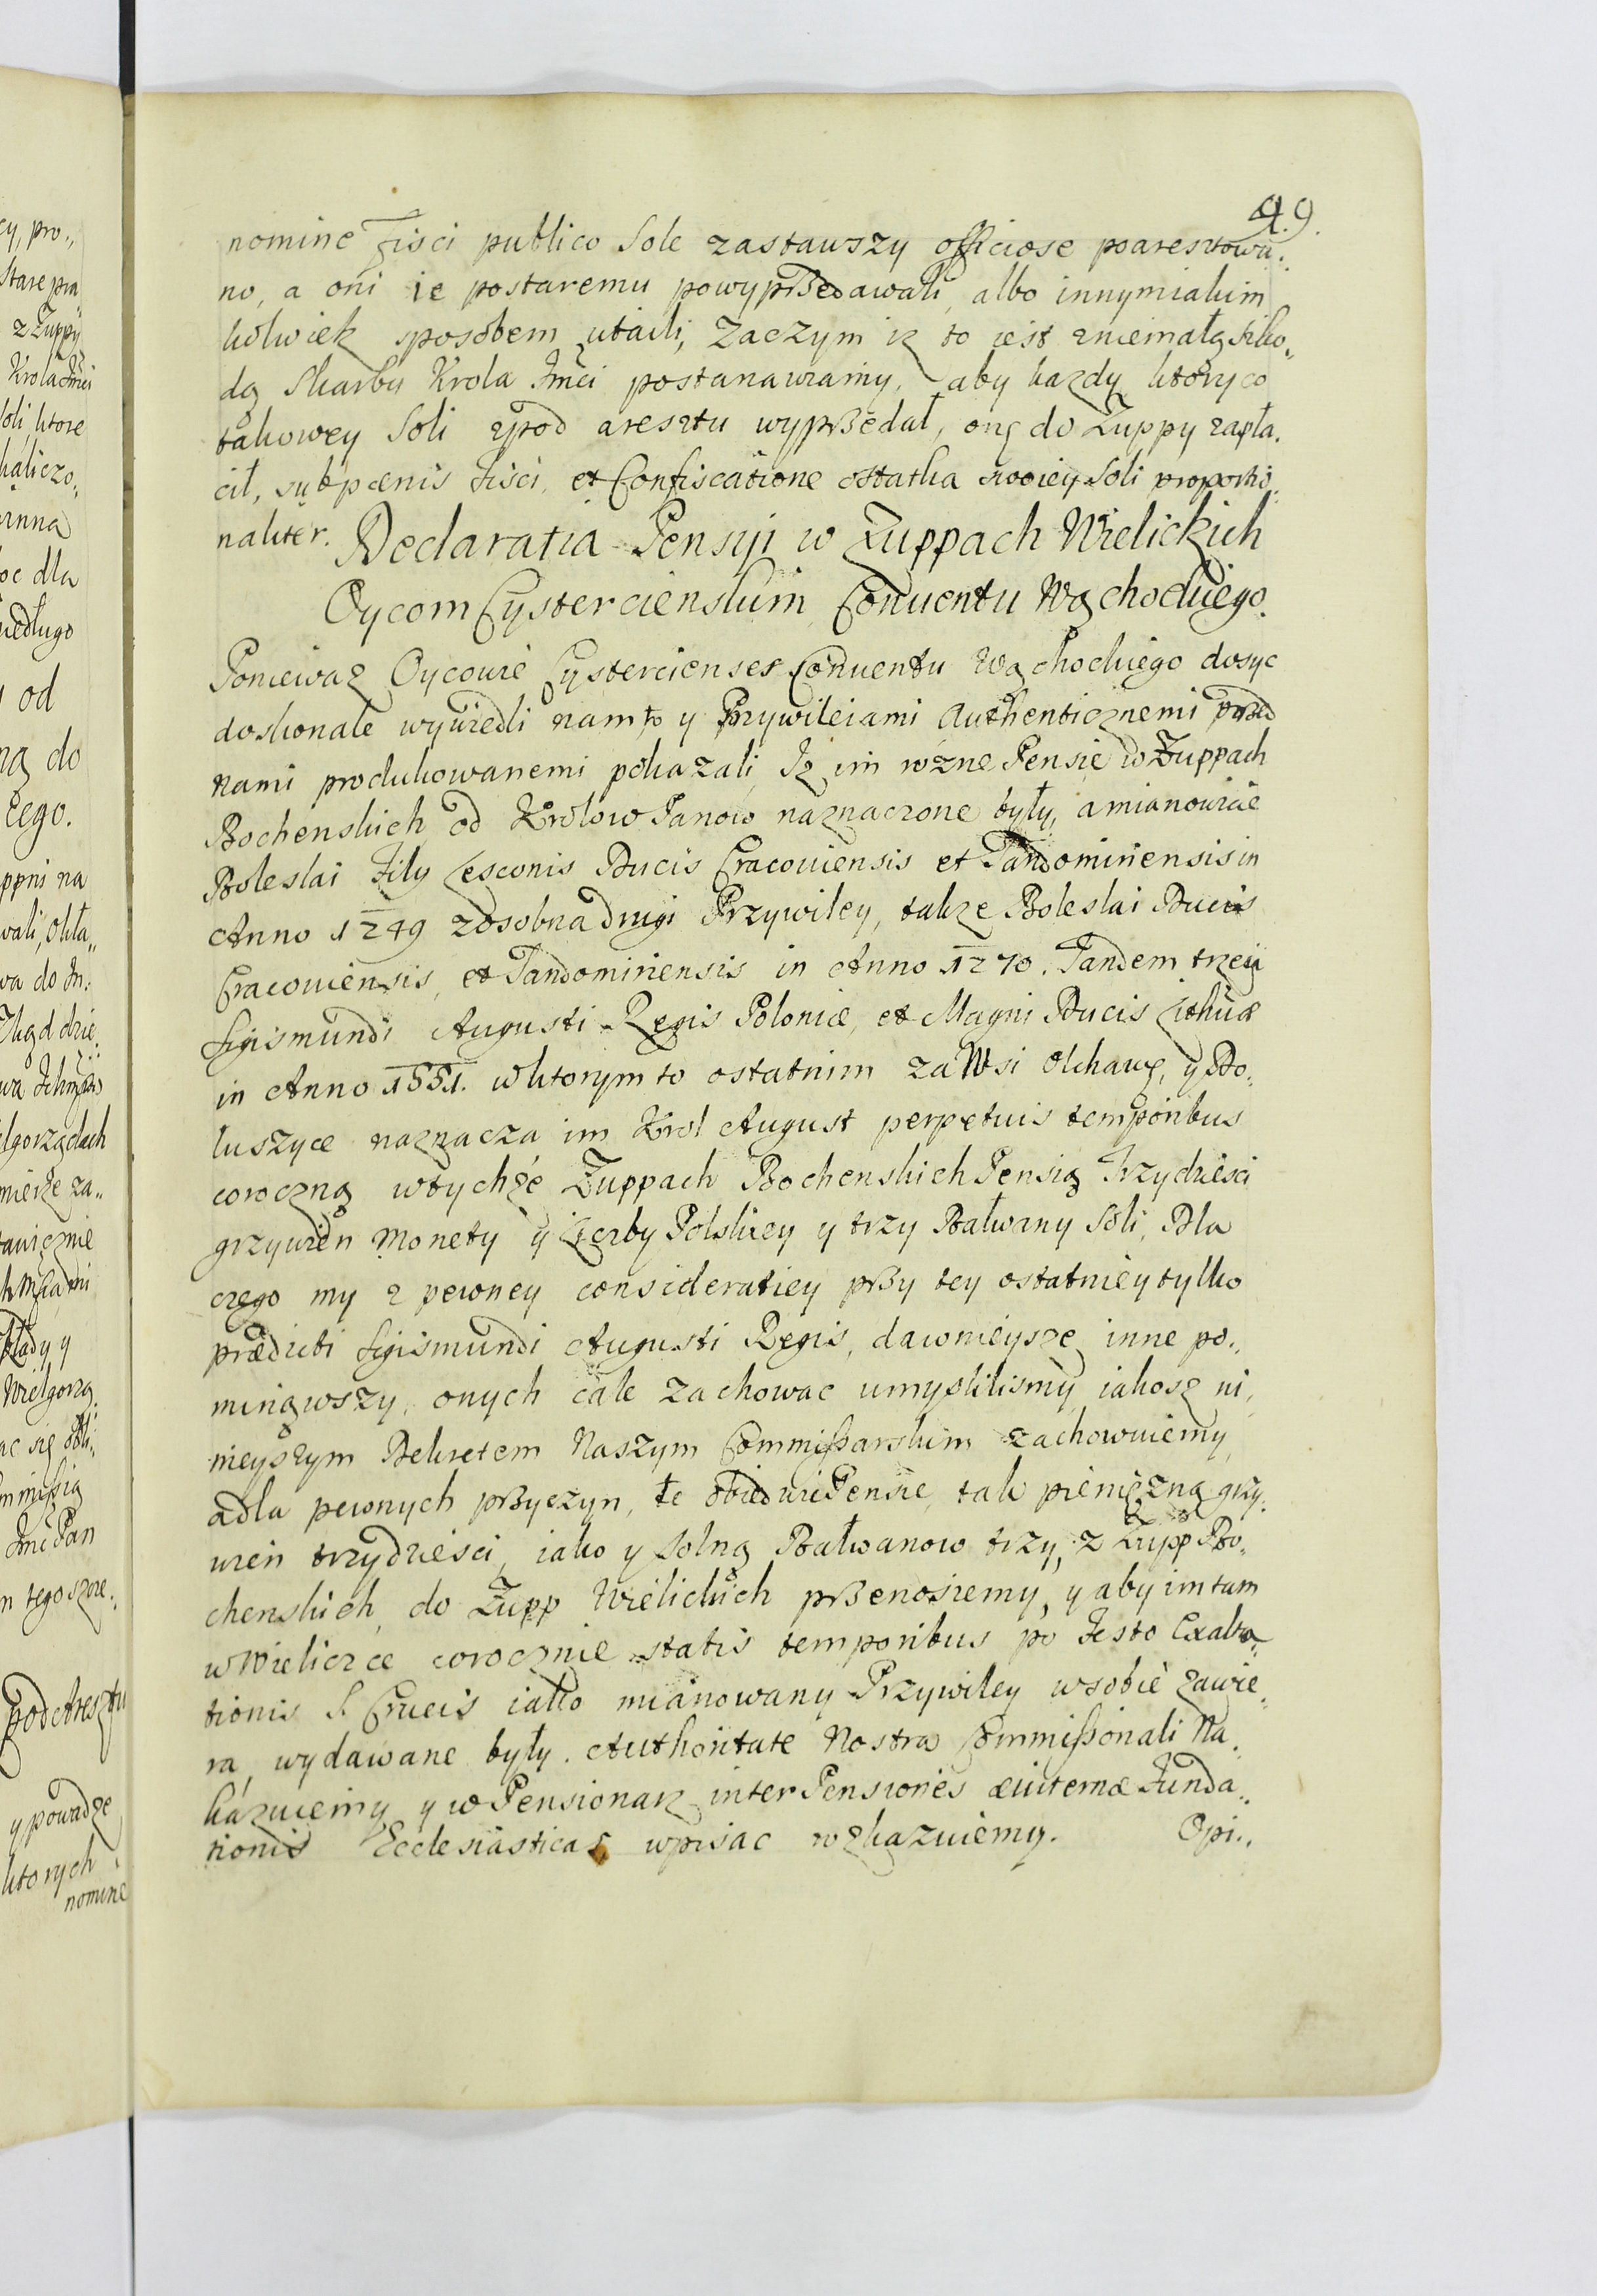 49.
nomine Fisci publico Sole zastawszy officiose poaresztowa:
no, a oni ie postaremu powyprzedawali, albo innymiakim
kolwiek sposobem utaili, Zaczym iz to iest zniemałą szko„
dą Skarbu Krola Jmci postanawiamy, aby kazdy ktoryco
takowey Soli zpod aresztu wyprzedał, onę do Żuppy zapła.
cił, sub pœnis fisci, et Confiscatione ostatka swoiey Soli proportio„
naliter. Declaratia Pensyi w Żuppach Wielickich
Oycom Cystercienskim Conuentu Wąchockiego.
Poniewaz Oycowie Cystercienses Conuentu Wąchockiego dosyc
doskonale wywiedli nam to y Przywileiami Authenticznemi przed
nami produkowanemi pokazali, Iz im rozne Pensie w Żuppach
Bochenskich od Krolow Panow naznaczone były, amianowicie
Boleslai Fily Lesconis Ducis Cracouiensis et Sandomiriensis in
Anno 1249 zosobna drugi Przywiley, takze Boleslai Ducis
Cracouiensis, et Sandomiriensis in Anno 1270. Tandem trzeci
Sigismundi Augusti Regis Poloniæ, et Magni Ducis Lithuæ
in Anno 1551. wktorym to ostatnim za Wsi Olchawę, y Bo„
luszyce naznacza im Krol August perpetuis temporibus
coroczną wtychże Żuppach Bochenskich Pensią Trzydziesci
grzywien Monety y Liczby Polskiey y trzy Bałwany Soli, Dla
czego my z pewney consideratiey przy tey ostatniey tylko
prædicti Sigismundi Augusti Regis, dawnieysze inne po„
minąwszy, onych cale zachowac umyslilismy, iakosz ni„
nieyszym Dekretem Naszym Commissarskim zachowuiemy,
adla pewnych przyczyn, te obiedwie Pensie, tak pieniężną grzy„
wien trzydziesci, iako y Solną Bałwanow trzy, z Żupp Bo„
chenskich, do Żupp Wielickich przenosiemy, y aby im tam
w Wieliczce corocznie statis temporibus po Festo Exalta„
tionis S. Crucis iako mianowany Przywiley wsobie zawie„
ra, wydawane były. Authoritate Nostra Commissionali Na„
kazuiemy y w Pensionarz inter Pensiones æuiternæ Funda„
tionis Ecclesiasticas wpisac wzkazuiemy. Opi„